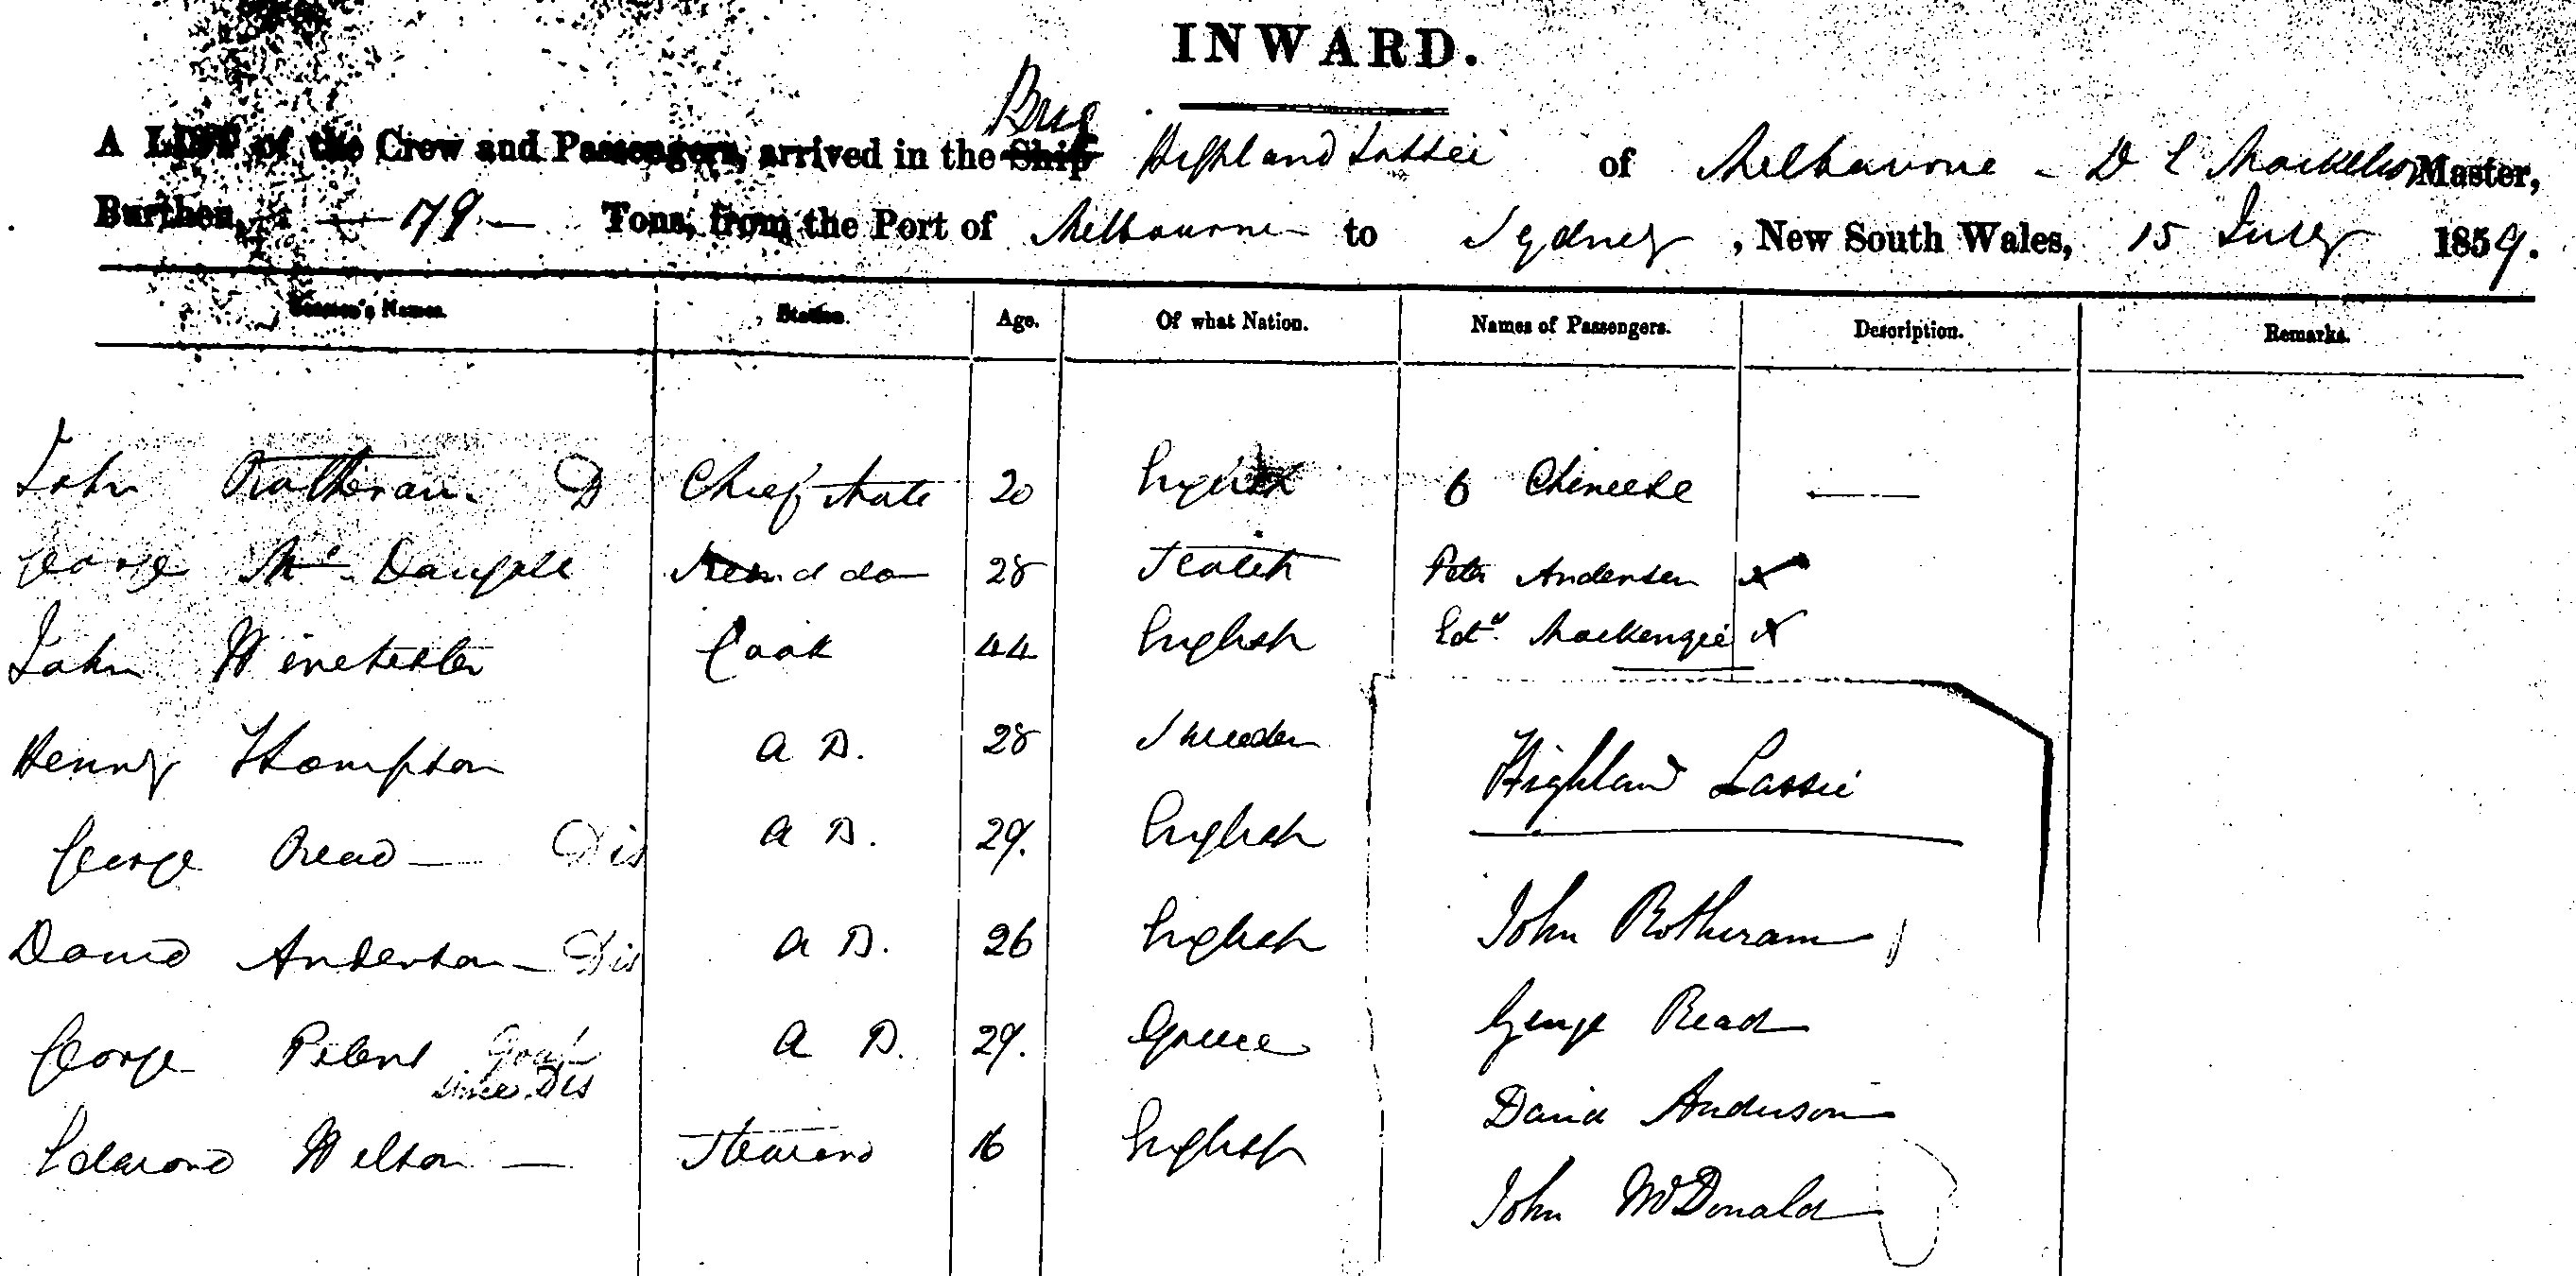 INWARD.
Brig
A LIST of the Crew and Passengers, arrived in the Ship Highland Lassie of Melbourne - D C Mackellar Master,
Burthen, 179 Tons, from the Port of Melbourne to Sydney, New South Wales, 15 July 1859.
Seamen's Names. Station. Age. Of what Nation. Names of Passengers. Description. Remarks.
John Rotheram D Chief Mate 20 English 6 Chineese
George Mc Dougall Second do 28 Scotch Peter Andersen x
John Winchester Cook 44 English Edwd. Mackenzie x
Henry Thompson A B. 28 Sweeden
Highland Lassie
George Read Dis A B. 29. English
David Anderson Dis A B. 26 English John Rotheram
George Peters since Dis A B. 29. Greece George Read
David Anderson
Edmond Wilson Steward 16 English
John McDonald